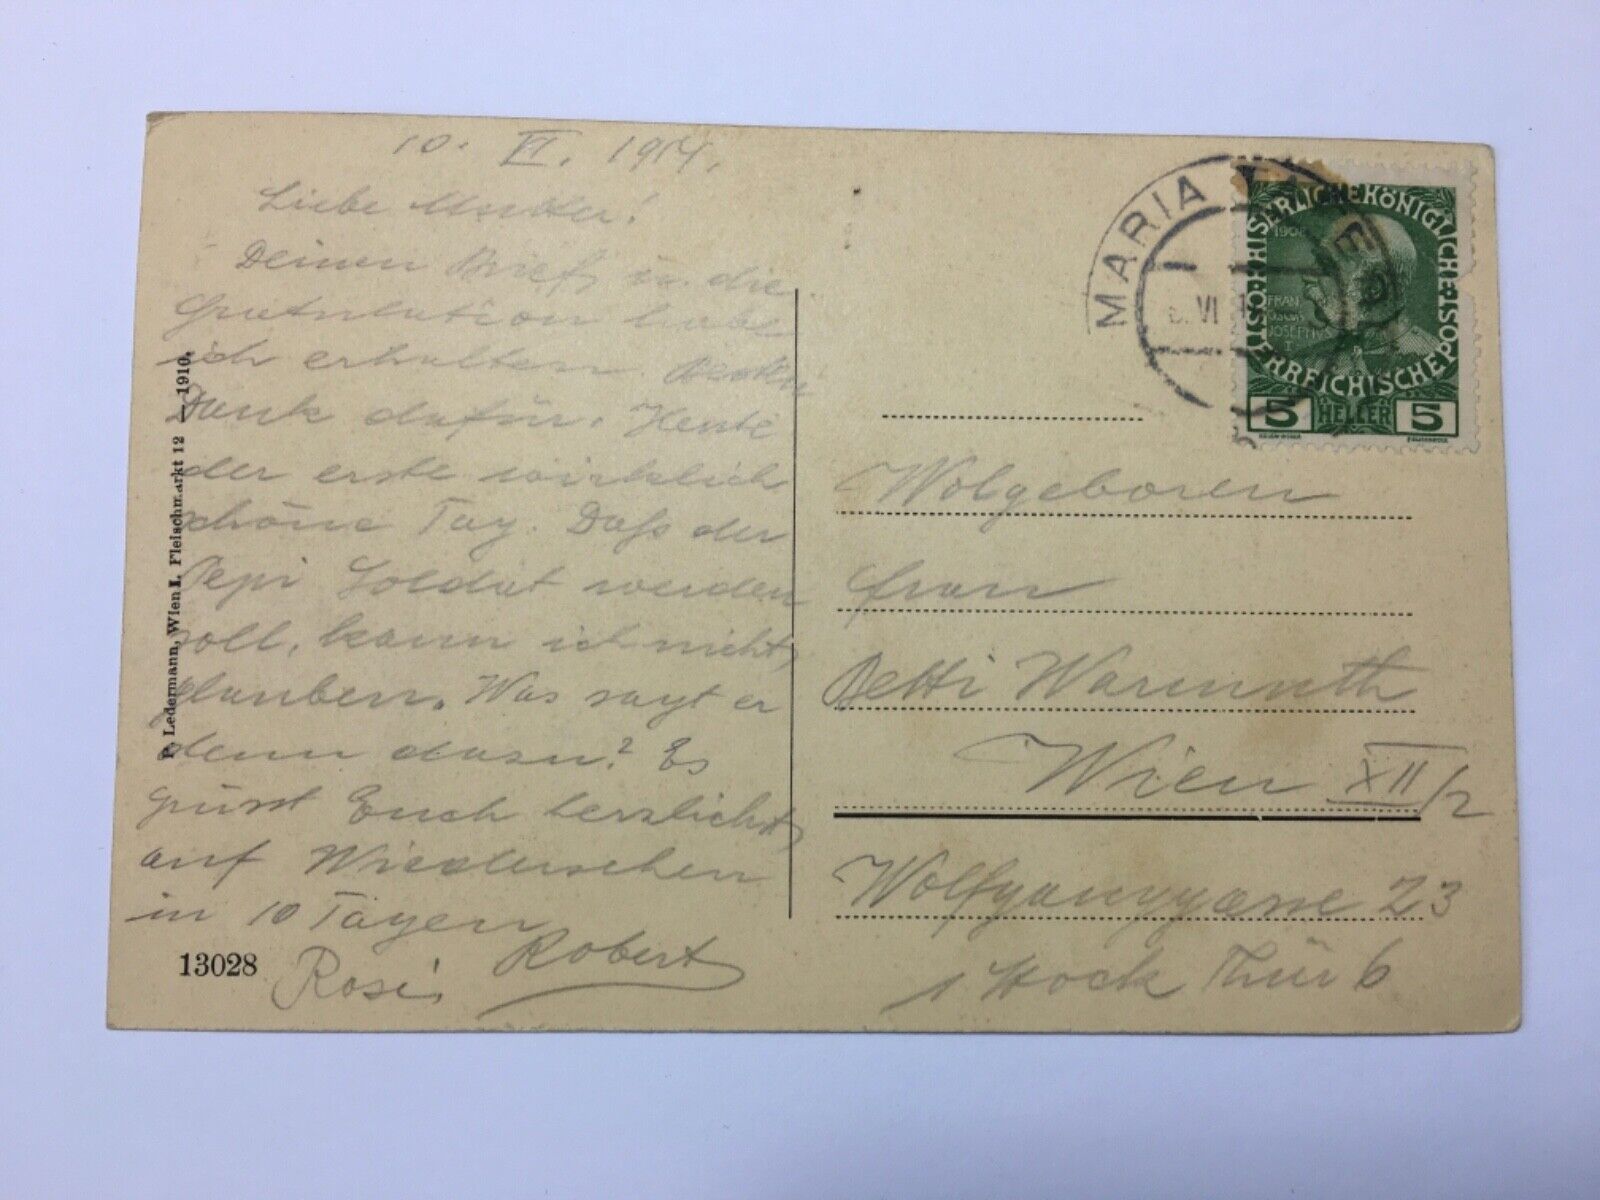 10. VI. 1914.
Liebe Mutter!
Deinen Brief u. die
Gratulation habe
ich erhalten. Besten
Dank dafür. Heute
der erste wirklich
schöne Tag. Daß der
Pepi Soldat werden
soll, kann ich nicht
glauben. Was sagt er
denn dazu? Es
grüsst Euch herzlichst,
auf Wiedersehen
in 10 Tagen
Robert
Rosi.
P. Ledermann, Wien I. Fleischmarkt 12 — 1910.
13028
MARIA
VI
KAISERLICHE KÖNIGLICHE
ÖSTERREICHISCHE POST
1908
FRAN
JOSEPH
I
5 HELLER 5
Wolgeboren
Frau
Betti Warmuth
Wien XII/2
Wolfganggasse 23
1 Stock Thür 6